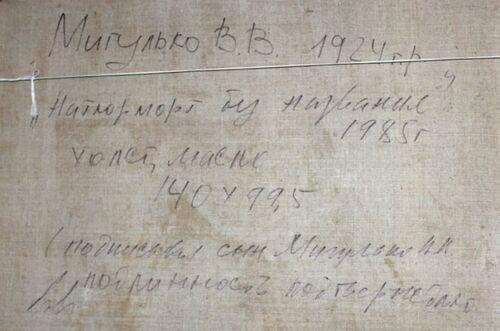 Мигулько В.В. 1924 г.р.
"Натюрморт без названия"
1985 г
холст, масло
140 х 99,5
(подписывал сын Мигулько
подлинность подтверждаю